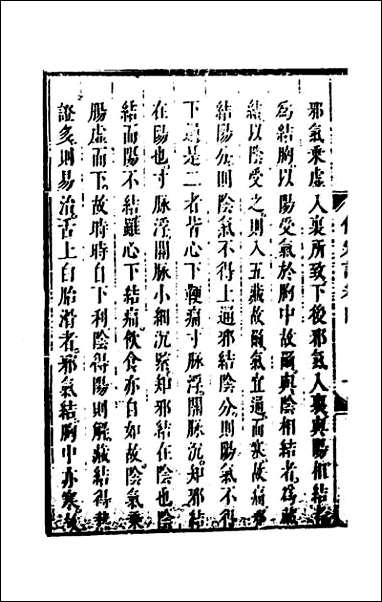 邪氣乘虛入裏所致下後邪氣入裏與陽相結者
爲結胸以陽受氣於胸中故爾與陰相結者爲藏
結以陰受之則入五藏故爾氣宜通而塞故痛邪
結陽分則陰氣不得上通邪結陰分則陽氣不得
下通是二者皆心下鞕痛寸脉浮關脉沉知邪結
在陽也寸脉浮關脉小細沉緊知邪結在陰也陰
結而陽不結雖心下結痛飲食亦自如故陰氣乘
腸虛而下故時時自下利陰得陽則解藏結得熱
證多則易治舌上白胎滑者邪氣結胸中亦寒故